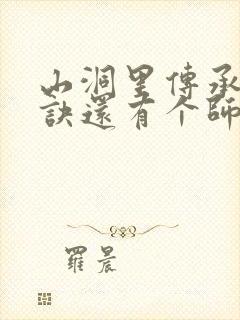 山洞里傳承
訣還有个師
羅晨